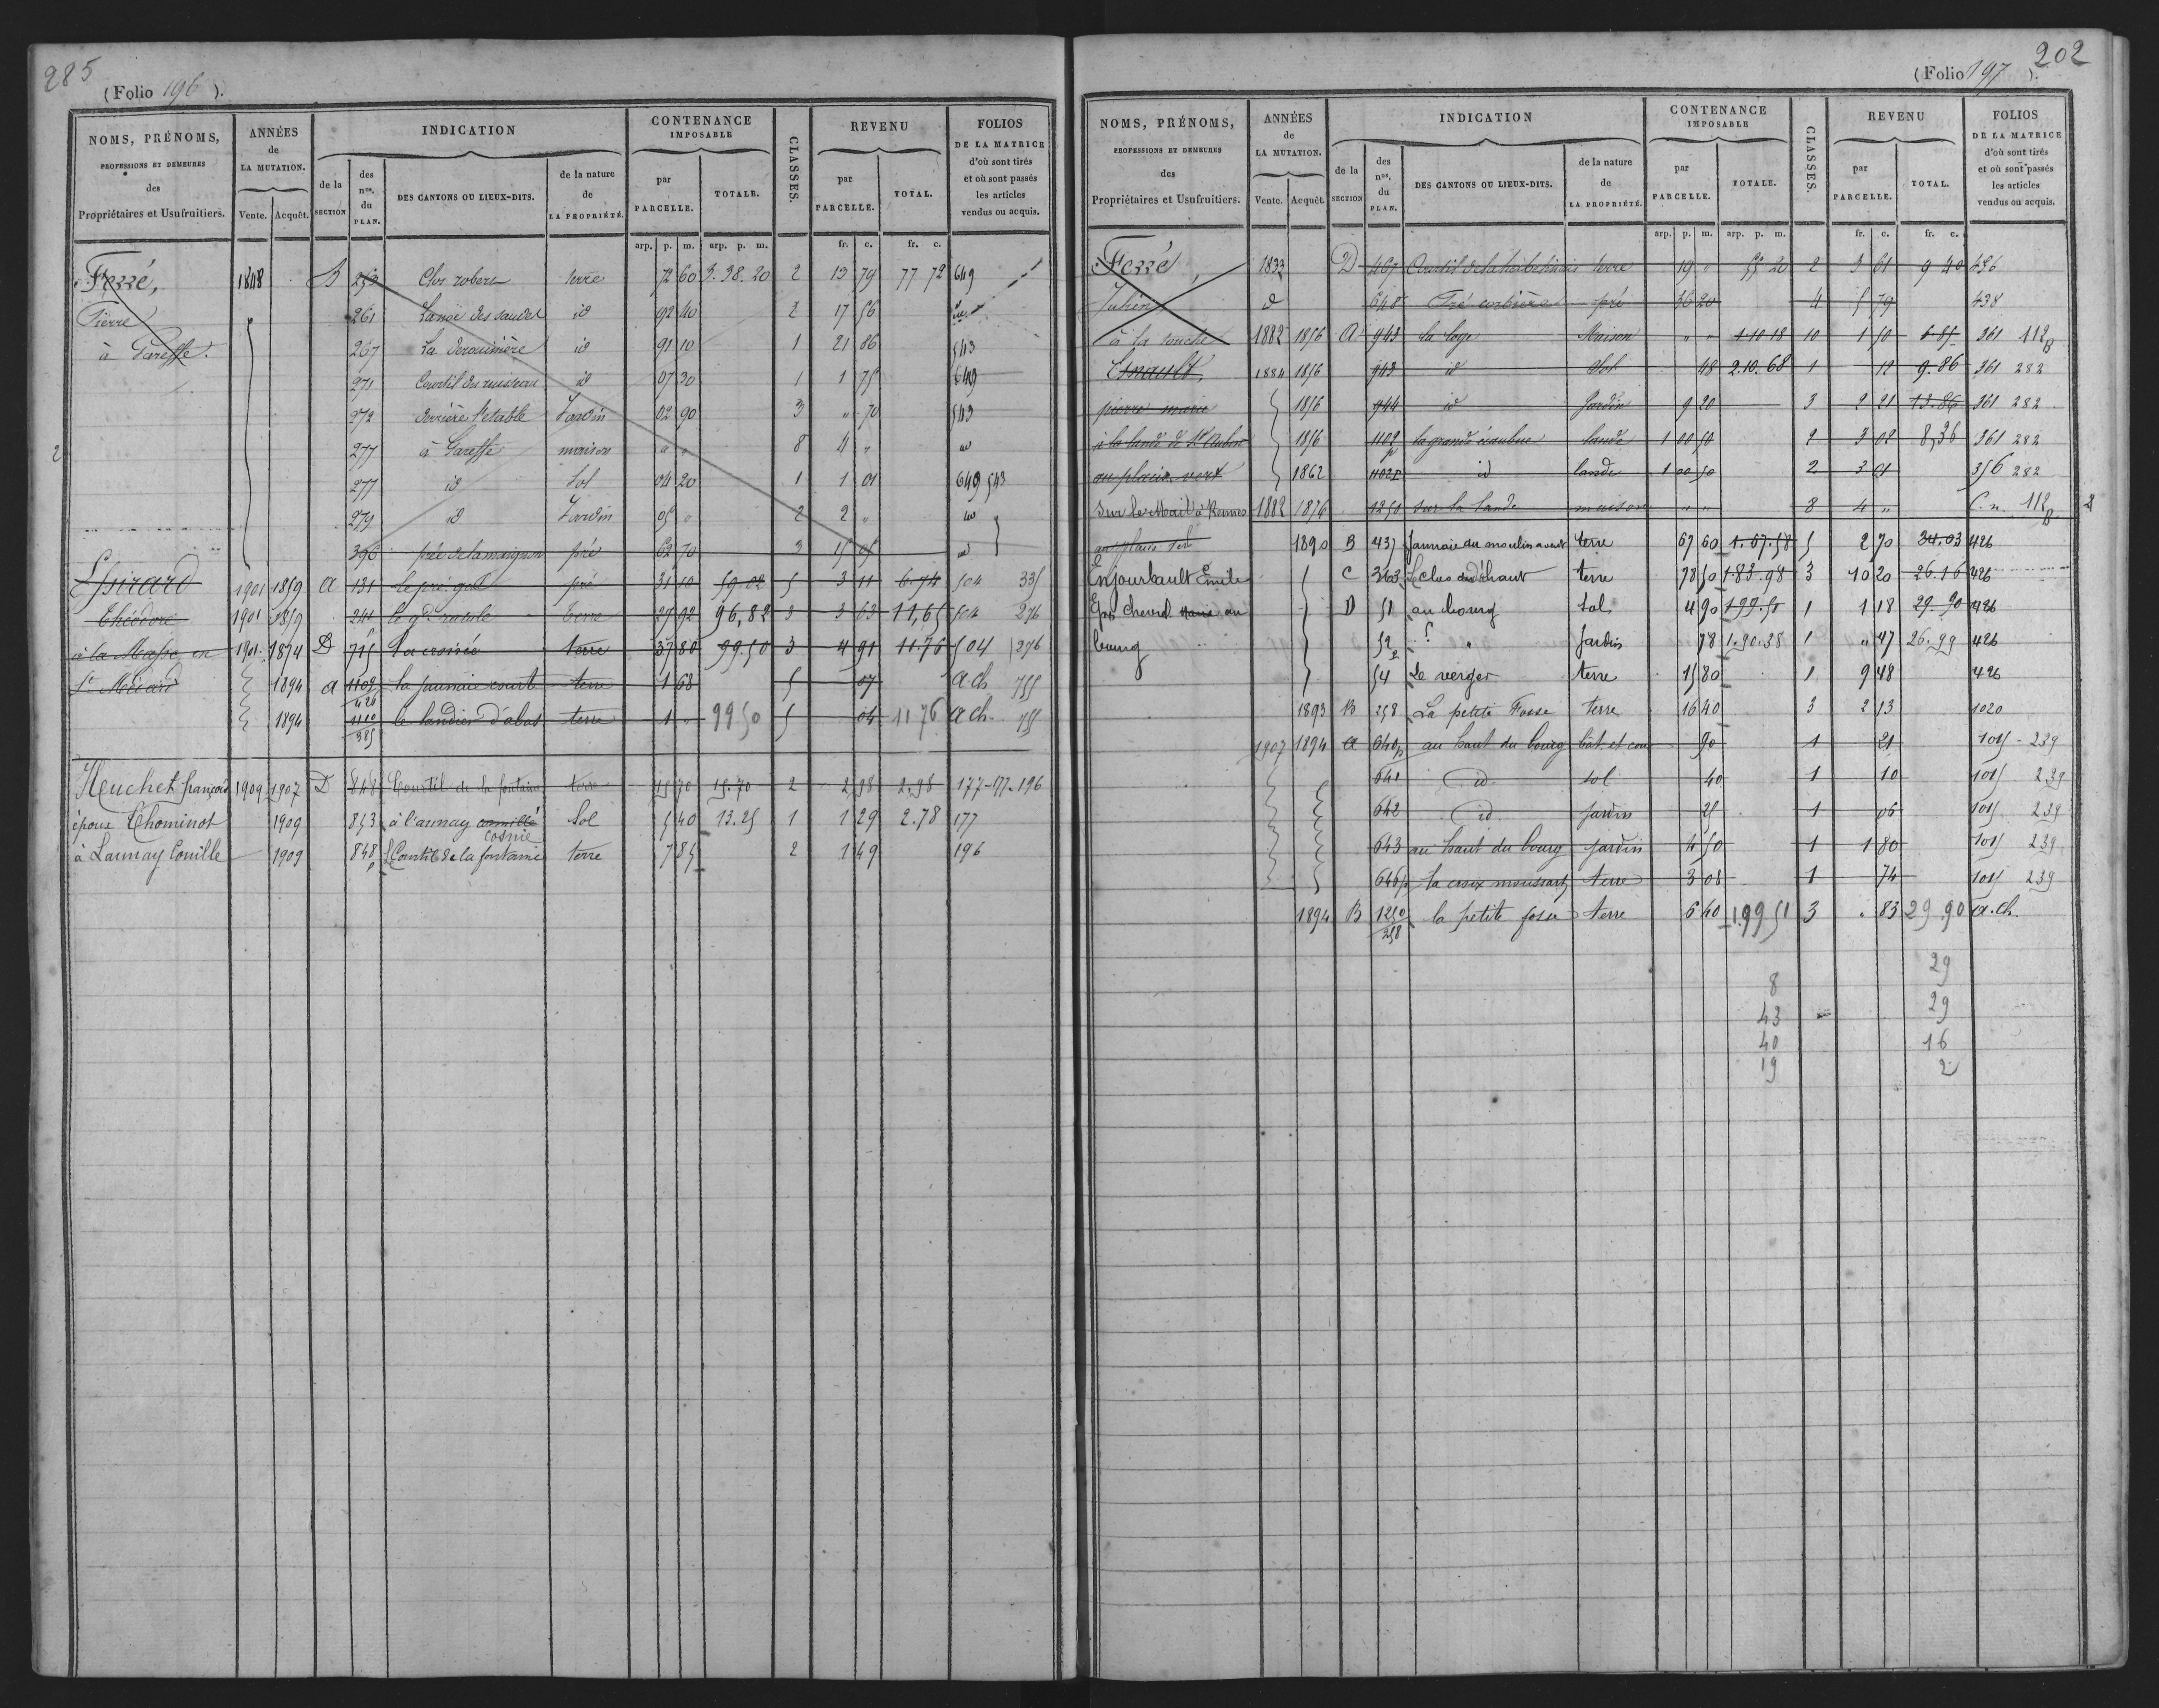 285
(Folio 196 ).
NOMS, PRÉNOMS, PROFESSIONS ET DEMEURES des Propriétaires et Usufruitiers.
ANNÉES de LA MUTATION. Vente. Acquêt.
INDICATION de la SECTION des nos. du PLAN. DES CANTONS OU LIEUX-DITS. de la nature de LA PROPRIÉTÉ.
CONTENANCE IMPOSABLE par PARCELLE. TOTALE.
CLASSES.
REVENU par PARCELLE. TOTAL.
FOLIOS DE LA MATRICE d'où sont tirés et où sont passés les articles vendus ou acquis.
arp. p. m. arp. p. m. fr. c. fr. c.
Ferré, 1848 B 250 Clos robert terre 72 60 3. 38. 20 2 13 79 77 72 649
Pierre 261 id 92 40 2 17 56
à Gareffe. 267 La id 91 10 1 21 86 543
271 Courtil du ruisseau id 07 30 1 1 75 649
272 derrière l'etable Jardin 02 90 3 " 70 543
277 à Gareffe maison " " 8 4 " id
277 id Sol 04 20 1 1 01 649 543
279 id Jardin 05 " 2 2 " id
396 pré 62 70 3 15 05 id
Essirard 1901 1859 A 131 le pré pré 31 10 59 02 5 3 11 6.74 504 335
Théodore 1901 1859 241 le gd terre 27 92 96,82 3 3 63 11,65 504 276
à la Masse en 1901 1874 D 715 La croisée terre 37 80 99.50 3 4 91 11.76 504 276
St Médard 1894 A 1109 la jaunaie courte terre 1 68 5 07 A ch 755
420
1894 1110 le landier d'abas terre 1 " 99 50 5 04 11 76 A ch. 755
385
Heuchet françois 1909 1907 D 848 Courtil de la fontaine terre 15 70 15.70 2 2 98 2.98 177-177-196
époux Thominot 1909 853 à l'aunay Sol 5 40 13.25 1 1 29 2.78 177
cosnie
à Launay Couille 1909 848 Courtil de la fontaine terre 7 85 2 1 49 196
p
202
(Folio 197 ).
NOMS, PRÉNOMS, PROFESSIONS ET DEMEURES des Propriétaires et Usufruitiers.
ANNÉES de LA MUTATION. Vente. Acquêt.
INDICATION de la SECTION des nos. du PLAN. DES CANTONS OU LIEUX-DITS. de la nature de LA PROPRIÉTÉ.
CONTENANCE IMPOSABLE par PARCELLE. TOTALE.
CLASSES.
REVENU par PARCELLE. TOTAL.
FOLIOS DE LA MATRICE d'où sont tirés et où sont passés les articles vendus ou acquis.
arp. p. m. arp. p. m. fr. c. fr. c.
Ferré, 1833 D 467 Courtil terre 19 " 55 20 2 3 61 9 40 436
Julien d 648 Pré pré 36 20 4 5 79 438
à la touche 1882 1856 A 943 la loge Maison " " 1 10 18 10 1 50 6.85 361 112
Esnault, 1884 1856 943 id Sol 48 2.10.68 1 12 9.86 361 282
pierre marie 1856 944 id Jardin 9 20 3 2 21 13.86 361 282
à la lande de St Aubin 1856 1102 la grande lande 1 00 50 2 3 02 8,36 361 282
au placis vert 1862 1102 id lande 1 00 50 2 3 01 356 282
Sur le Mail à Rennes 1882 1876 1250 Sur la lande maison " " 8 4 " C. n. 112
au placis vert 1890 B 437 Jaunaie du moulin a vent terre 67 60 1.67.58 5 2 70 34.03 426
Enjourbault Emile C 363 Le clos d'ahaut terre 78 50 1.83.98 3 10 20 26.16 426
Epx Chevrel au D 51 au bourg Sol 4 90 1.99.51 1 1 18 29.90 426
bourg 52 " Jardin 78 1.90.38 1 " 47 26.99 426
54 Le verger terre 15 80 1 9 48 426
1893 B 258 La petite Fosse terre 16 40 3 2 13 1020
1907 1894 A 640p au haut du bourg bât. et cour 90 1 21 1015 - 239
641 id sol 40 1 10 1015 239
642 id jardin 25 1 06 1015 239
643 au haut du bourg jardin 4 50 1 1 80 1015 239
646p la croix moussart terre 3 08 1 74 1015 239
1894 B 1250 la petite fosse terre 6 40 1.99 51 3 " 83 29.90 A. ch.
258
29
8
29
43
16
40
2
19